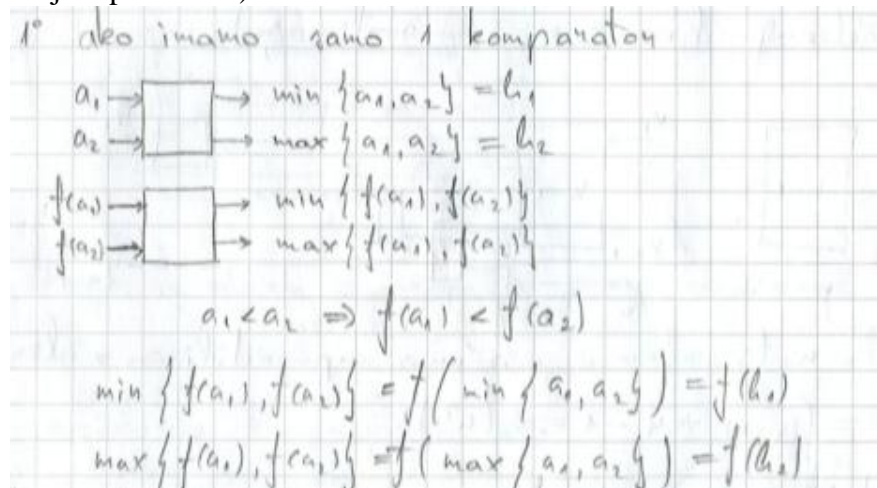 1° deo imamo samo 1 komparator
a₁ → → min {a₁, a₂} = b₁
a₂ → → max {a₁, a₂} = b₂
f(a₁) → → min {f(a₁), f(a₂)}
f(a₂) → → max {f(a₁), f(a₂)}
a₁ < a₂ ⇒ f(a₁) < f(a₂)
min {f(a₁), f(a₂)} = f(min {a₁, a₂}) = f(b₁)
max {f(a₁), f(a₂)} = f(max {a₁, a₂}) = f(b₂)